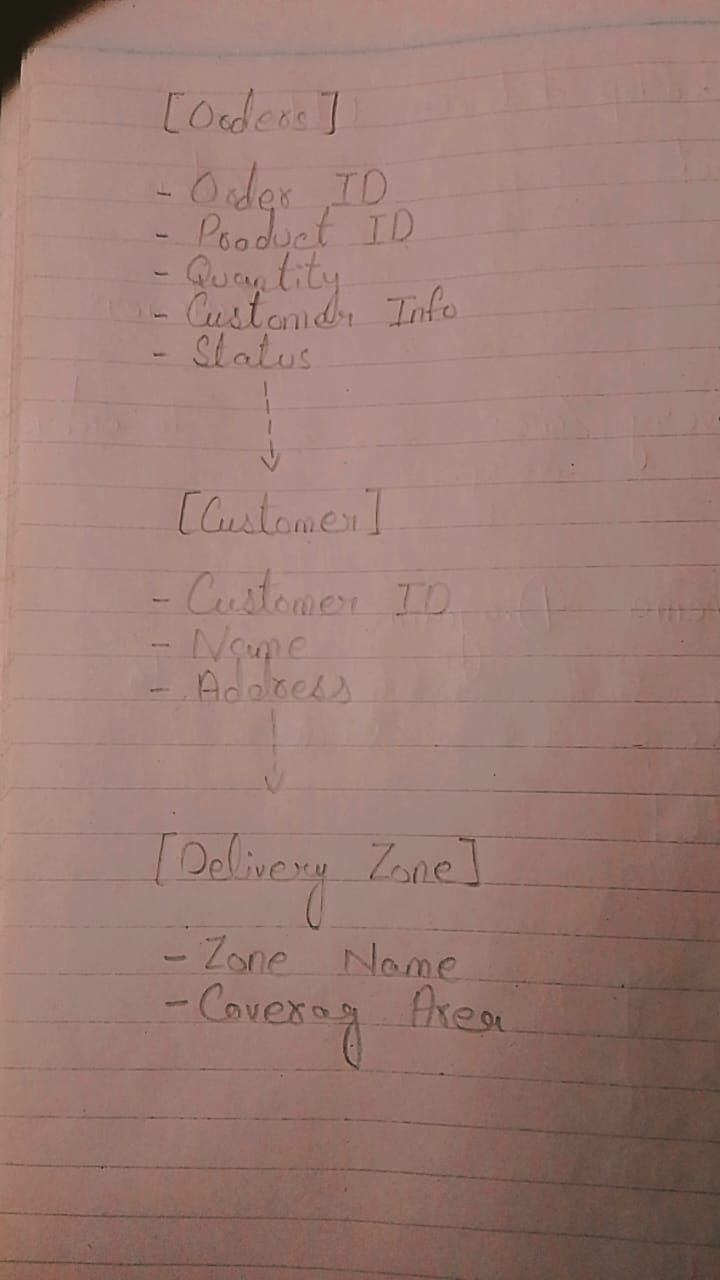 [Orders]
- Order ID
- Product ID
- Quantity
- Customer Info
- Status
[Customer]
- Customer ID
- Name
- Address
[Delivery Zone]
- Zone Name
- Coverag Area